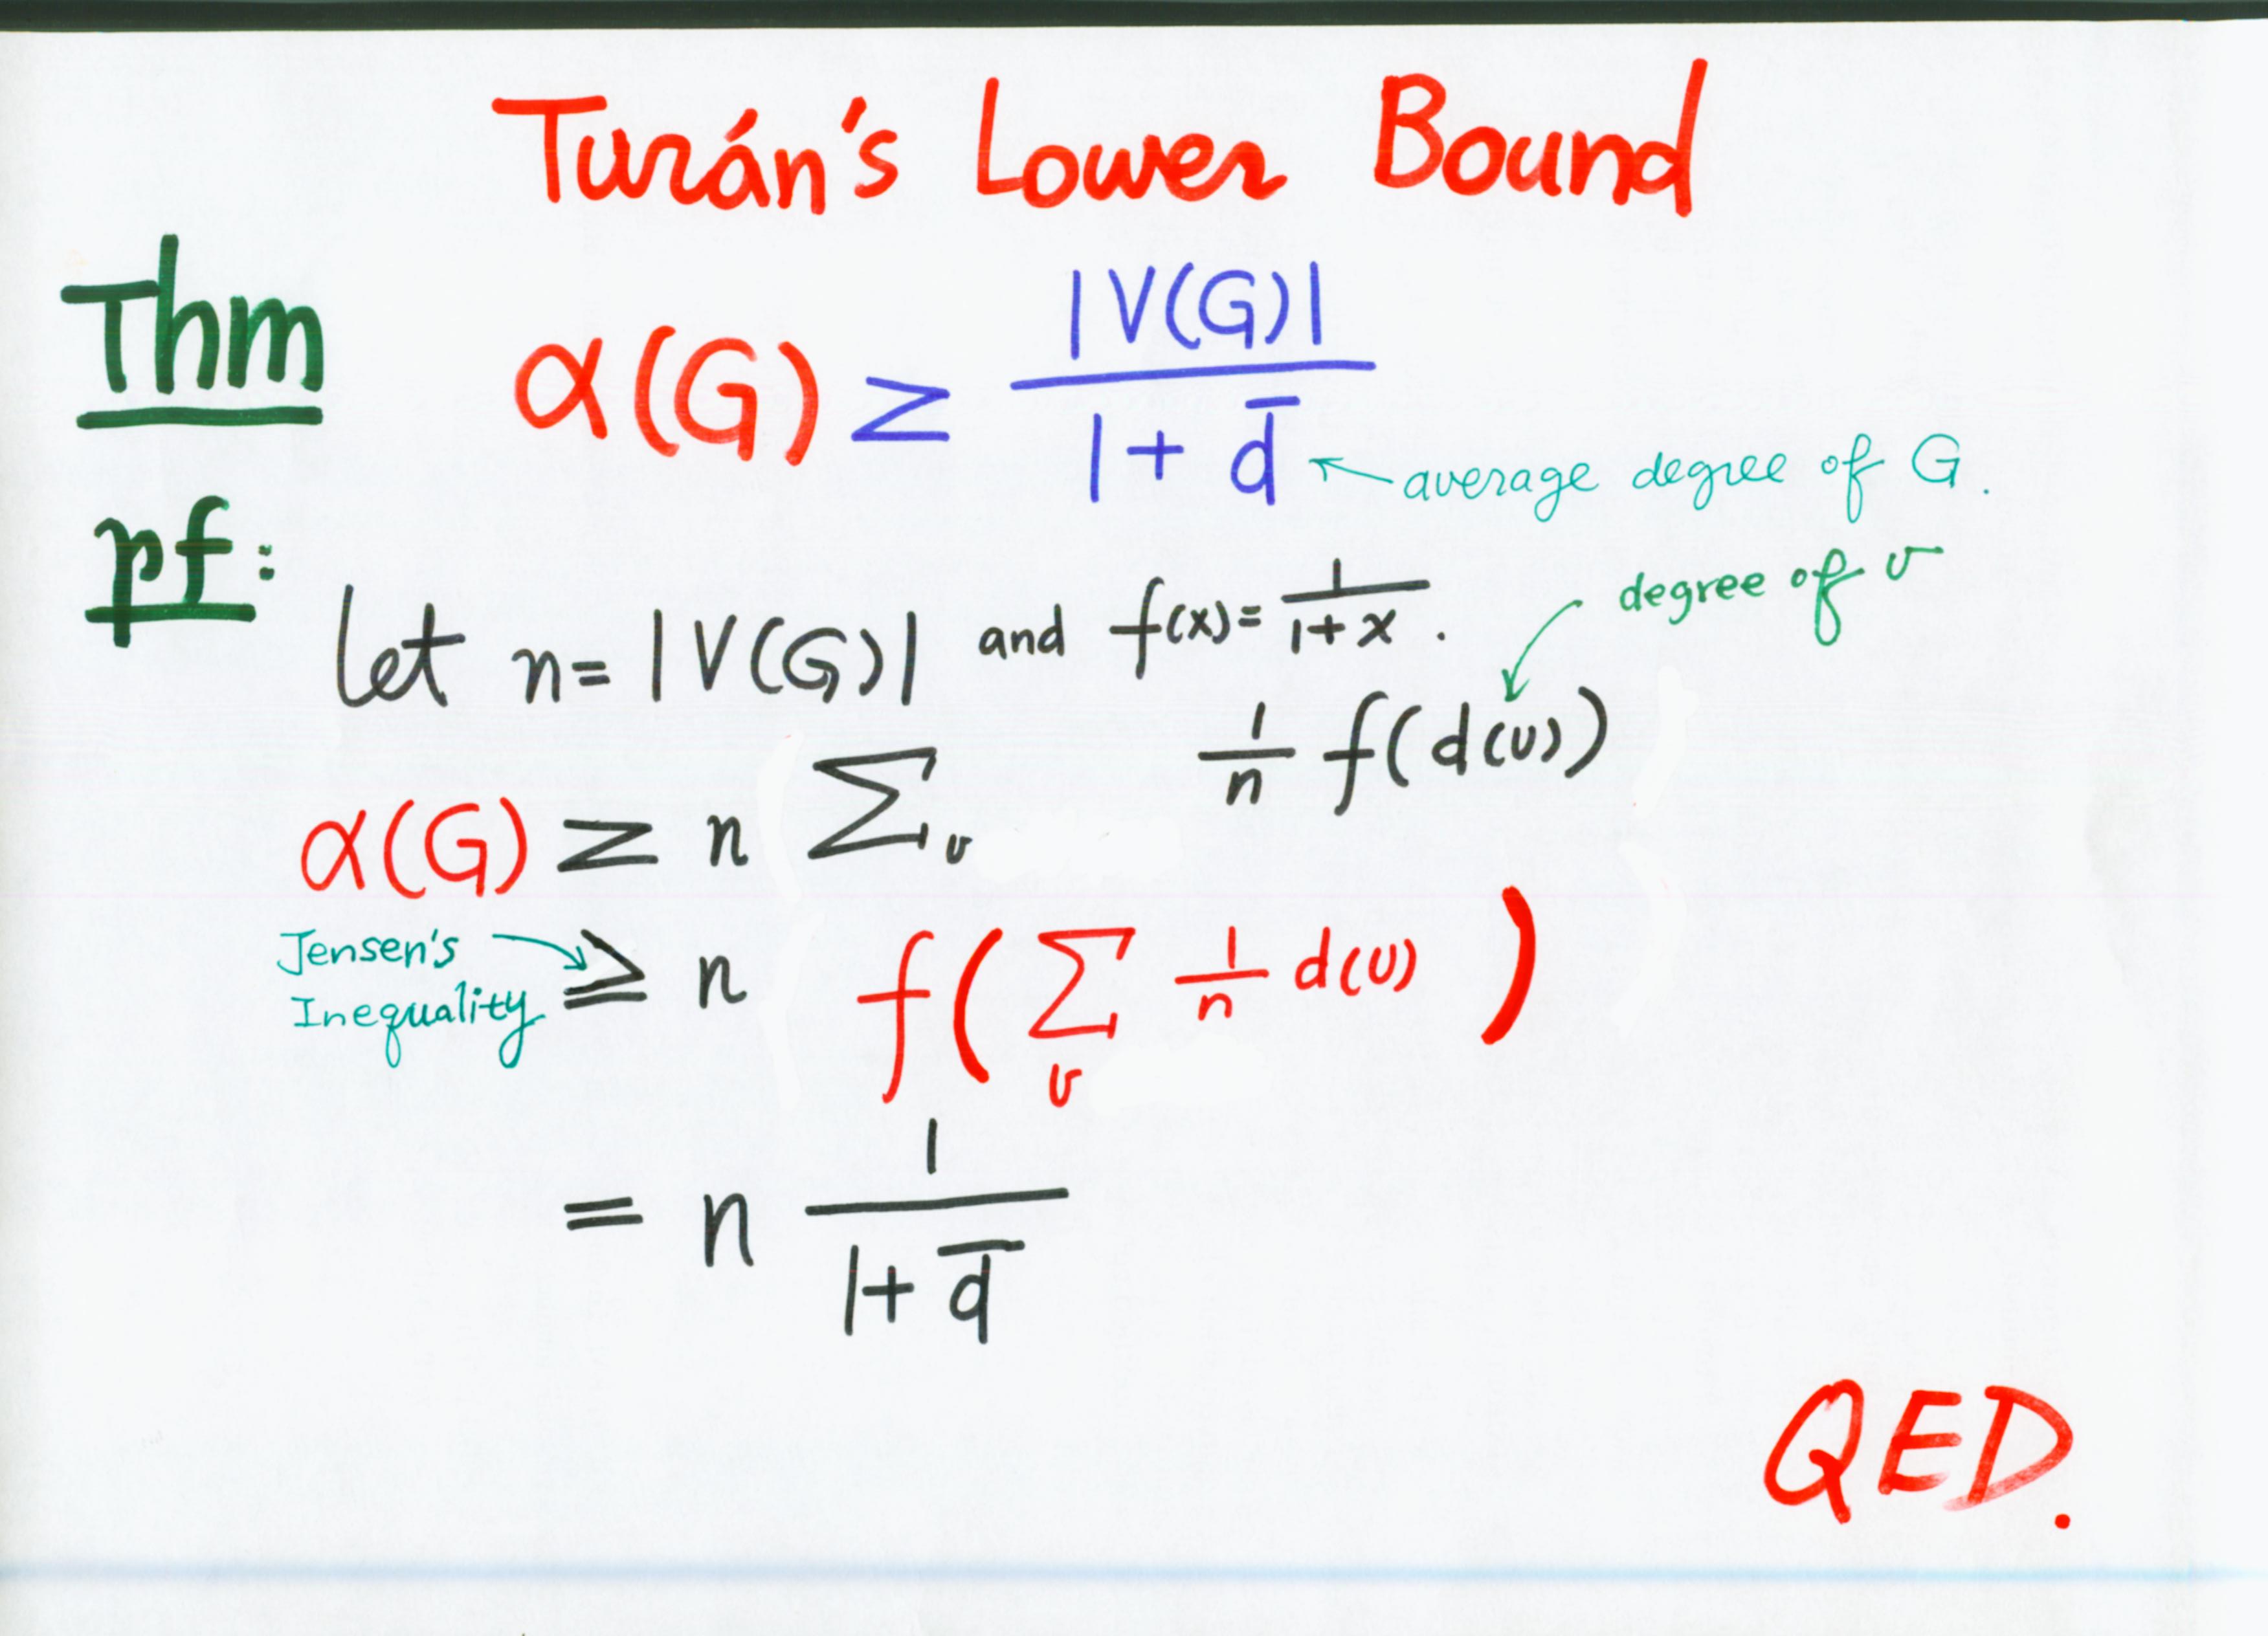 Turán's Lower Bound
Thm α(G) ≥ |V(G)| / (1 + d̅) ← average degree of G.
pf:
let n = |V(G)| and f(x) = 1/(1+x) .
degree of v
α(G) ≥ n Σ_v 1/n f(d(v))
Jensen's Inequality ≥ n f( Σ_v 1/n d(v) )
= n 1/(1+d̅)
QED.